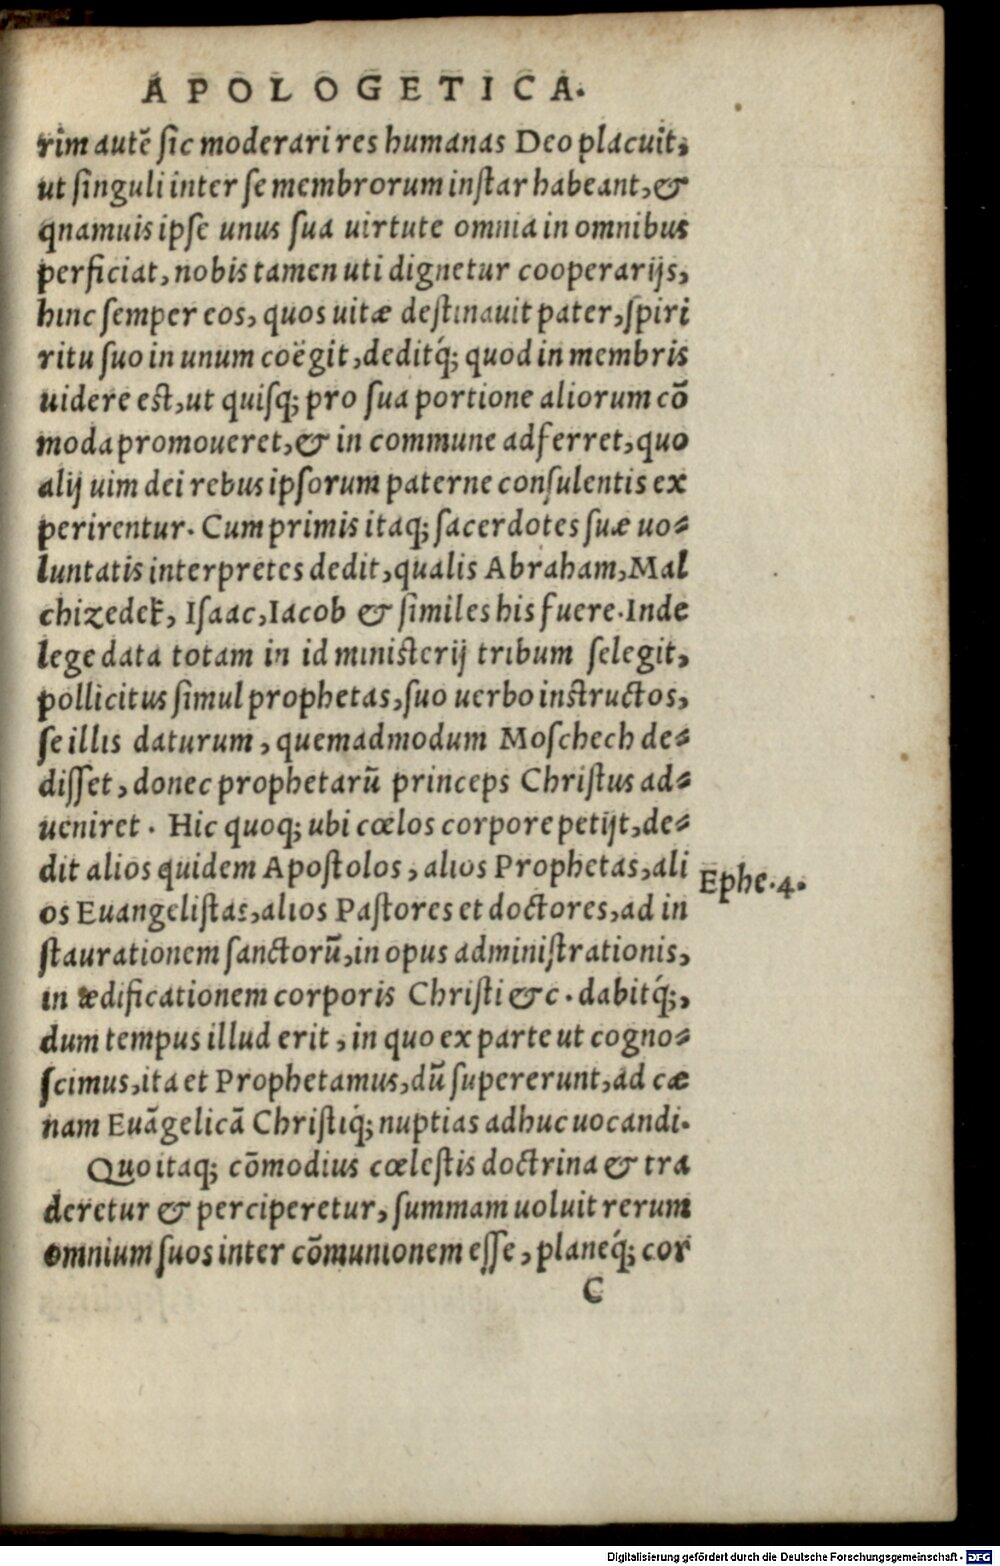 APOLOGETICA.
rim autẽ ſic moderari res humanas Deo placuit,
ut ſinguli inter ſe membrorum inſtar habeant, &
qnamuis ipſe unus ſua uirtute omnia in omnibus
perficiat, nobis tamen uti dignetur cooperarijs,
hinc ſemper eos, quos uitæ deſtinauit pater, ſpiri
ritu ſuo in unum coëgit, deditq́; quod in membris
uidere eſt, ut quiſq; pro ſua portione aliorum cõ
moda promoueret, & in commune adferret, quo
alij uim dei rebus ipſorum paterne conſulentis ex
perirentur. Cum primis itaq; ſacerdotes ſuæ uo-
luntatis interpretes dedit, qualis Abraham, Mal
chizedek, Iſaac, Iacob & ſimiles his fuere. Inde
lege data totam in id miniſterij tribum ſelegit,
pollicitus ſimul prophetas, ſuo uerbo inſtructos,
ſe illis daturum, quemadmodum Moſchech de-
diſſet, donec prophetarũ princeps Chriſtus ad-
ueniret. Hic quoq; ubi cœlos corpore petijt, de-
dit alios quidem Apoſtolos, alios Prophetas, ali
os Euangeliſtas, alios Paſtores et doctores, ad in
ſtaurationem ſanctorũ, in opus adminiſtrationis,
in ædificationem corporis Chriſti &c. dabitq́;,
dum tempus illud erit, in quo ex parte ut cogno-
ſcimus, ita et Prophetamus, dũ ſupererunt, ad cæ
nam Euãgelicã Chriſtiq́; nuptias adhuc uocandi.
Quo itaq; cõmodius cœleſtis doctrina & tra
deretur & perciperetur, ſummam uoluit rerum
omnium ſuos inter cõmunionem eſſe, planeq́; cor
C
Ephe. 4.
Digitalisierung gefördert durch die Deutsche Forschungsgemeinschaft - DFG